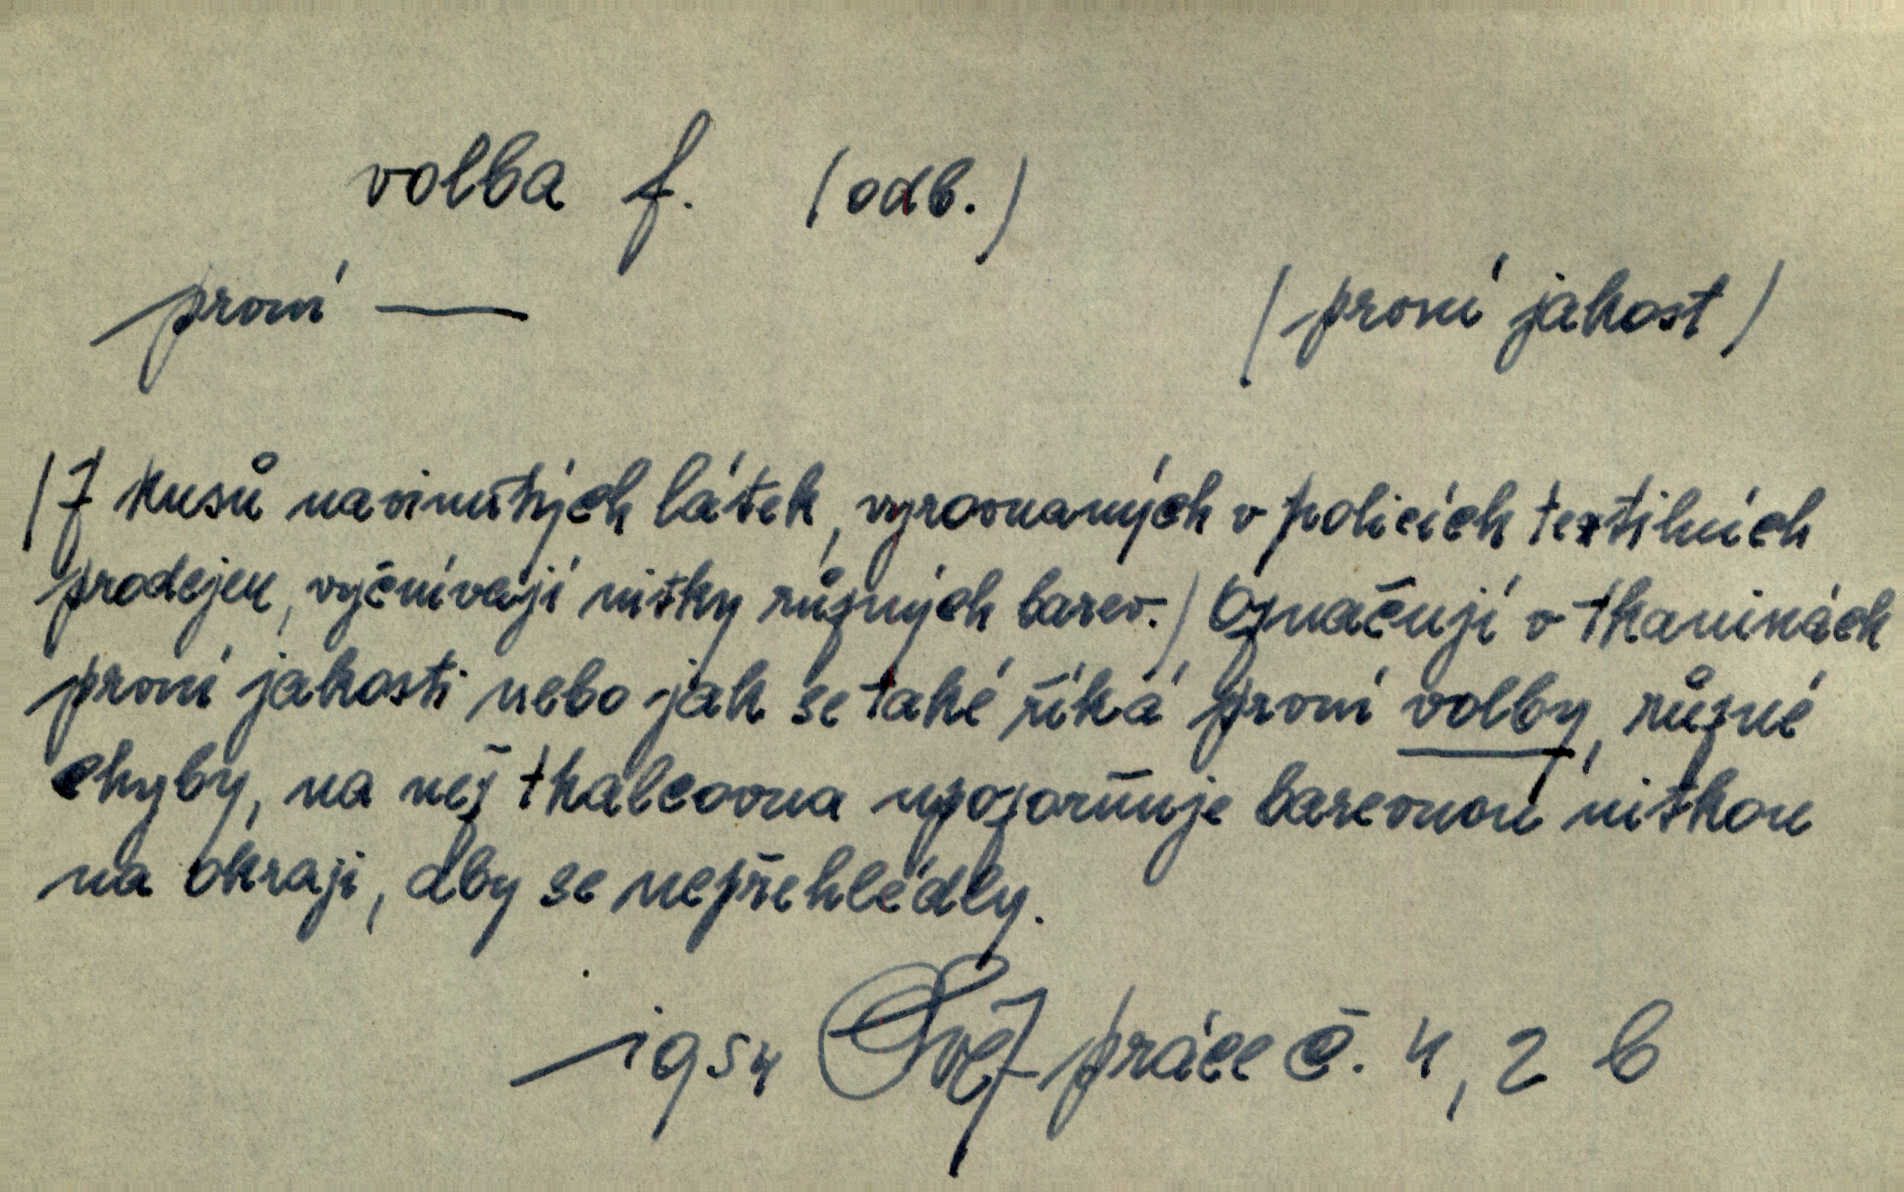 volba f. (odb.)
první —
(první jakost)
/Z kusů navinutých látek, vyrovnaných v policích textilních
prodejen, vyčnívají nitky různých barev./ Označují v tkaninách
první jakosti nebo jak se také říká první volby, různé
chyby, na něž tkalcovna upozorňuje barevnou nitkou
na okraji, aby se nepřehlédly.
1954 práce č. 4, 2 b